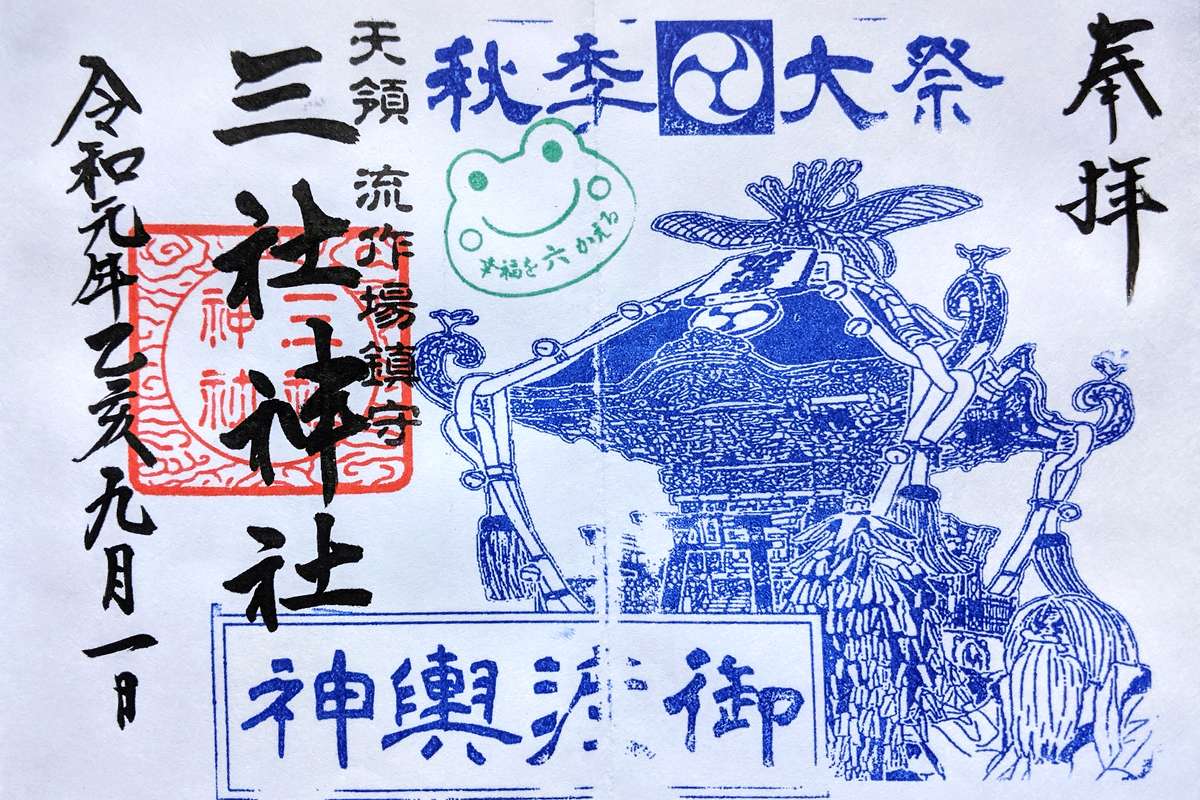 奉拝
秋季大祭
笑福を六かえる
天領 流作場鎮守
三社神社
三社
神社
神輿渡御
令和元年乙亥九月一日